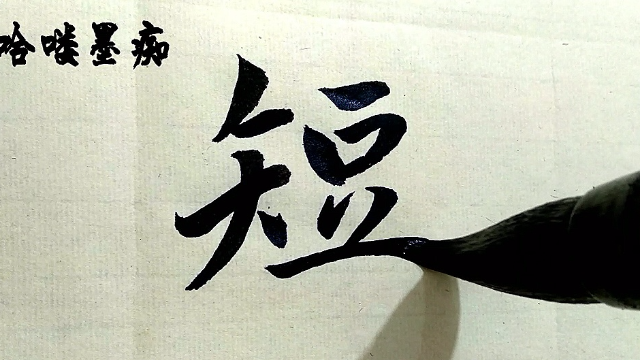 哈喽墨痴
短